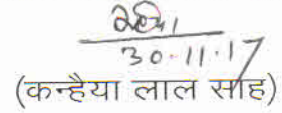 30.11.17
(कन्हैया लाल साह)